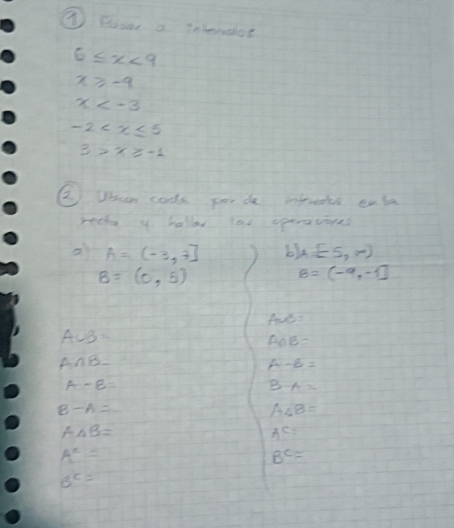 ① Pasar a intervalos
6 ≤ x < 9
x ≥ -9
x < -3
-2 < x ≤ 5
3 > x ≥ -1
② Ubicar cada par de intervalos en la
recta y hallar las operaciones
a) A = (-3, 7]
B = (0, 5)
A∪B=
A∩B=
A-B=
B-A=
A△B=
Aᶜ=
Bᶜ=
b) A=[-5, ∞)
B= (-9, -1]
A∪B=
A∩B=
A-B=
B-A=
A△B=
Aᶜ=
Bᶜ=